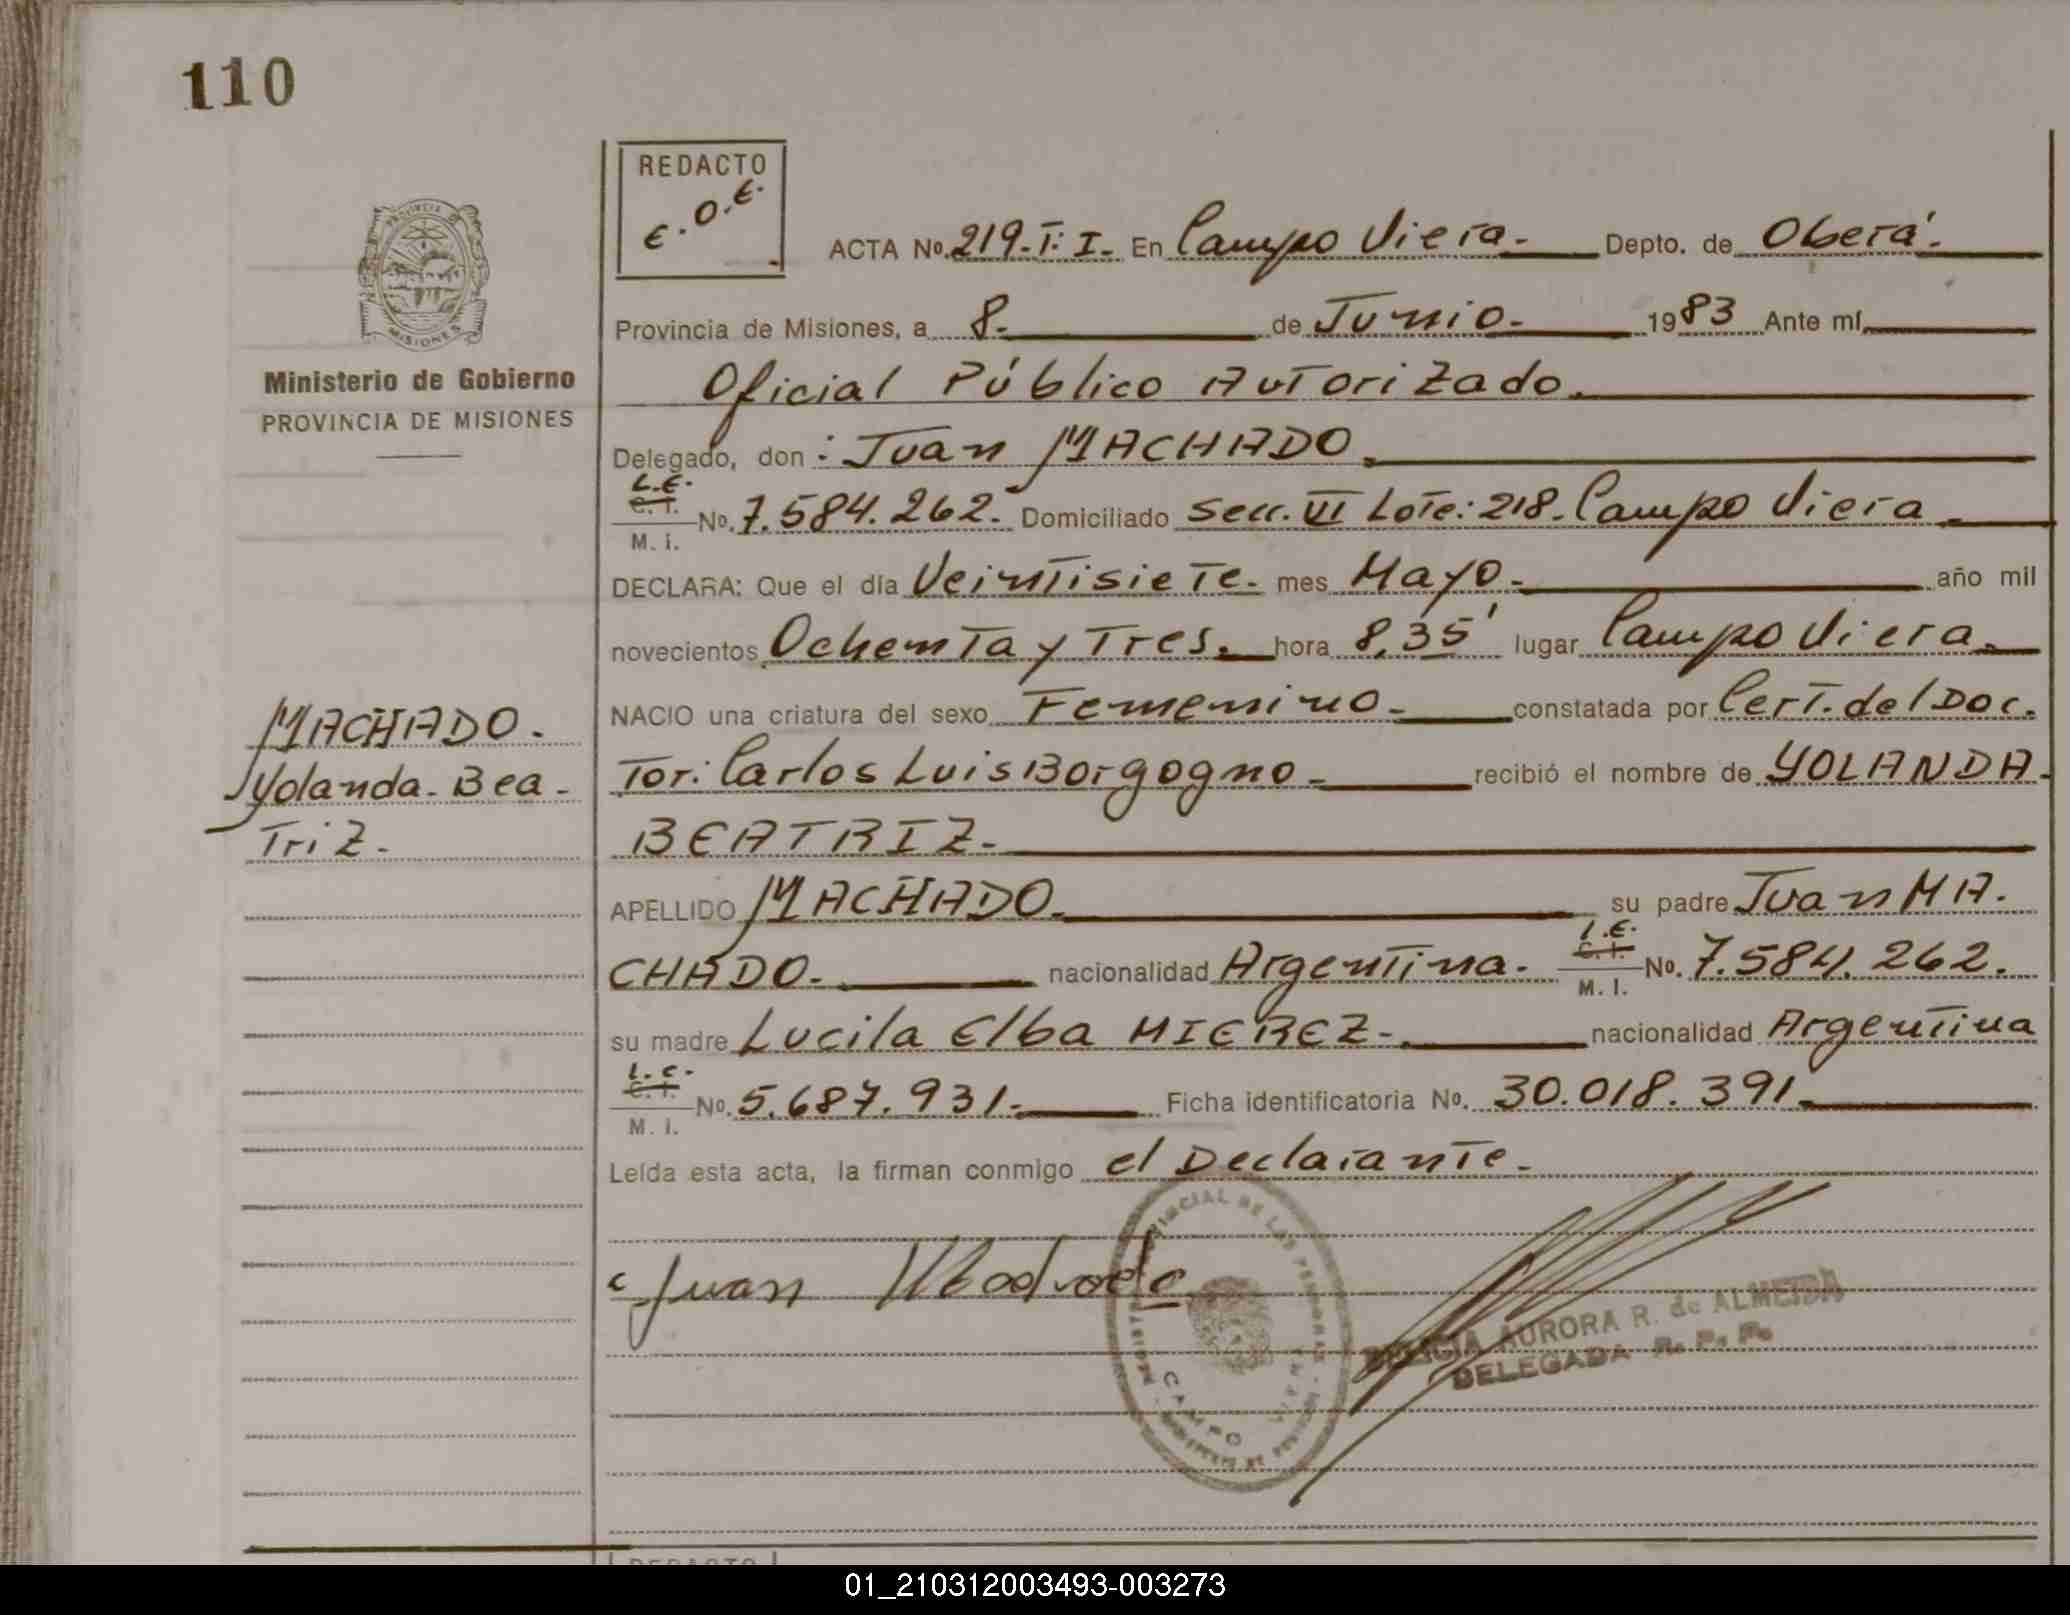 110
REDACTO
E.O.E.
PROVINCIA DE
MISIONES
Ministerio de Gobierno
PROVINCIA DE MISIONES
ACTA Nº. 219-T: I- En Campo Viera- Depto. de Oberá.
Provincia de Misiones, a 8. de Junio- 1983 Ante mí,
Oficial Público Autorizado.
Delegado, don: Juan MACHADO.
L.E.
C. I.
M. I. Nº. 7.584.262. Domiciliado Secc. VI Lote: 218. Campo Viera
DECLARA: Que el día Veintisiete- mes Mayo- año mil
novecientos Ochenta y Tres. hora 8,35' lugar Campo Viera.
NACIO una criatura del sexo Femenino- constatada por Cert. del Doc.
tor: Carlos Luis Borgogno- recibió el nombre de YOLANDA-
BEATRIZ-
APELLIDO MACHADO. su padre Juan MA.
CHADO. nacionalidad Argentina. L.E.
C. I.
M. I. Nº. 7.584.262.
su madre Lucila Elba MIEREZ- nacionalidad Argentina
L.C.
C. I.
M. I. Nº. 5.687.931- Ficha identificatoria Nº. 30.018.391-
Leída esta acta, la firman conmigo el Declarante-
MACHADO.
Yolanda- Bea-
Triz-
Juan Machado
PROVINCIAL DE LAS PERSONAS
CAMPO VIERA
AURORA R. de ALMEIDA
DELEGADA R. P. P.
REDACTO
01_210312003493-003273